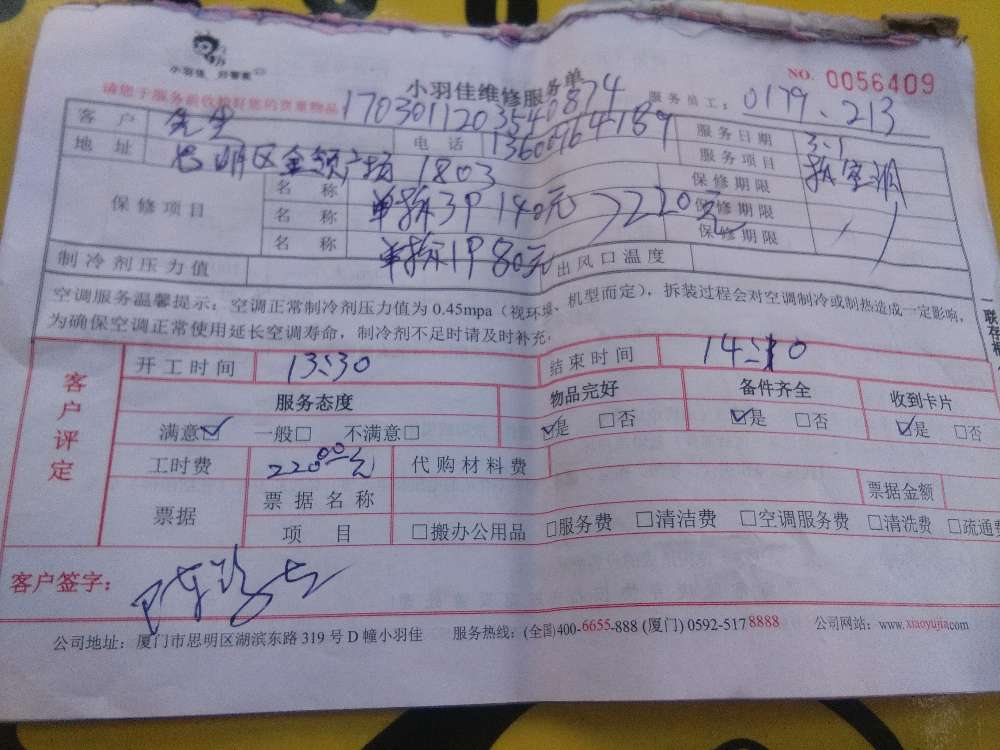 小羽佳 好管家
小羽佳维修服务单
NO. 0056409
请您于服务前收拾好您的贵重物品
1703011203540874
服务员工: 0179、213
客户 先生 电话 服务日期 3.1
地址 思明区金领广场 1803 服务项目 拆空调
保修项目 名称 单拆3P 140元 保修期限
名称 220元 保修期限
名称 单拆1P 80元 保修期限
制冷剂压力值 出风口温度
空调服务温馨提示：空调正常制冷剂压力值为 0.45mpa（视环境、机型而定），拆装过程会对空调制冷或制热造成一定影响，
为确保空调正常使用延长空调寿命，制冷剂不足时请及时补充
客户评定
开工时间 13:30 结束时间
服务态度 物品完好 备件齐全 收到卡片
满意☑ 一般□ 不满意□ ☑是 □否 ☑是 □否 ☑是 □否
工时费 220.00元 代购材料费
票据 票据名称 票据金额
项目 □搬办公用品 □服务费 □清洁费 □空调服务费 □清洗费 □疏通费
客户签字：
公司地址：厦门市思明区湖滨东路 319 号 D 幢小羽佳 服务热线：(全国)400-6655-888 (厦门) 0592-517 8888 公司网站：www.xiaoyujia.com